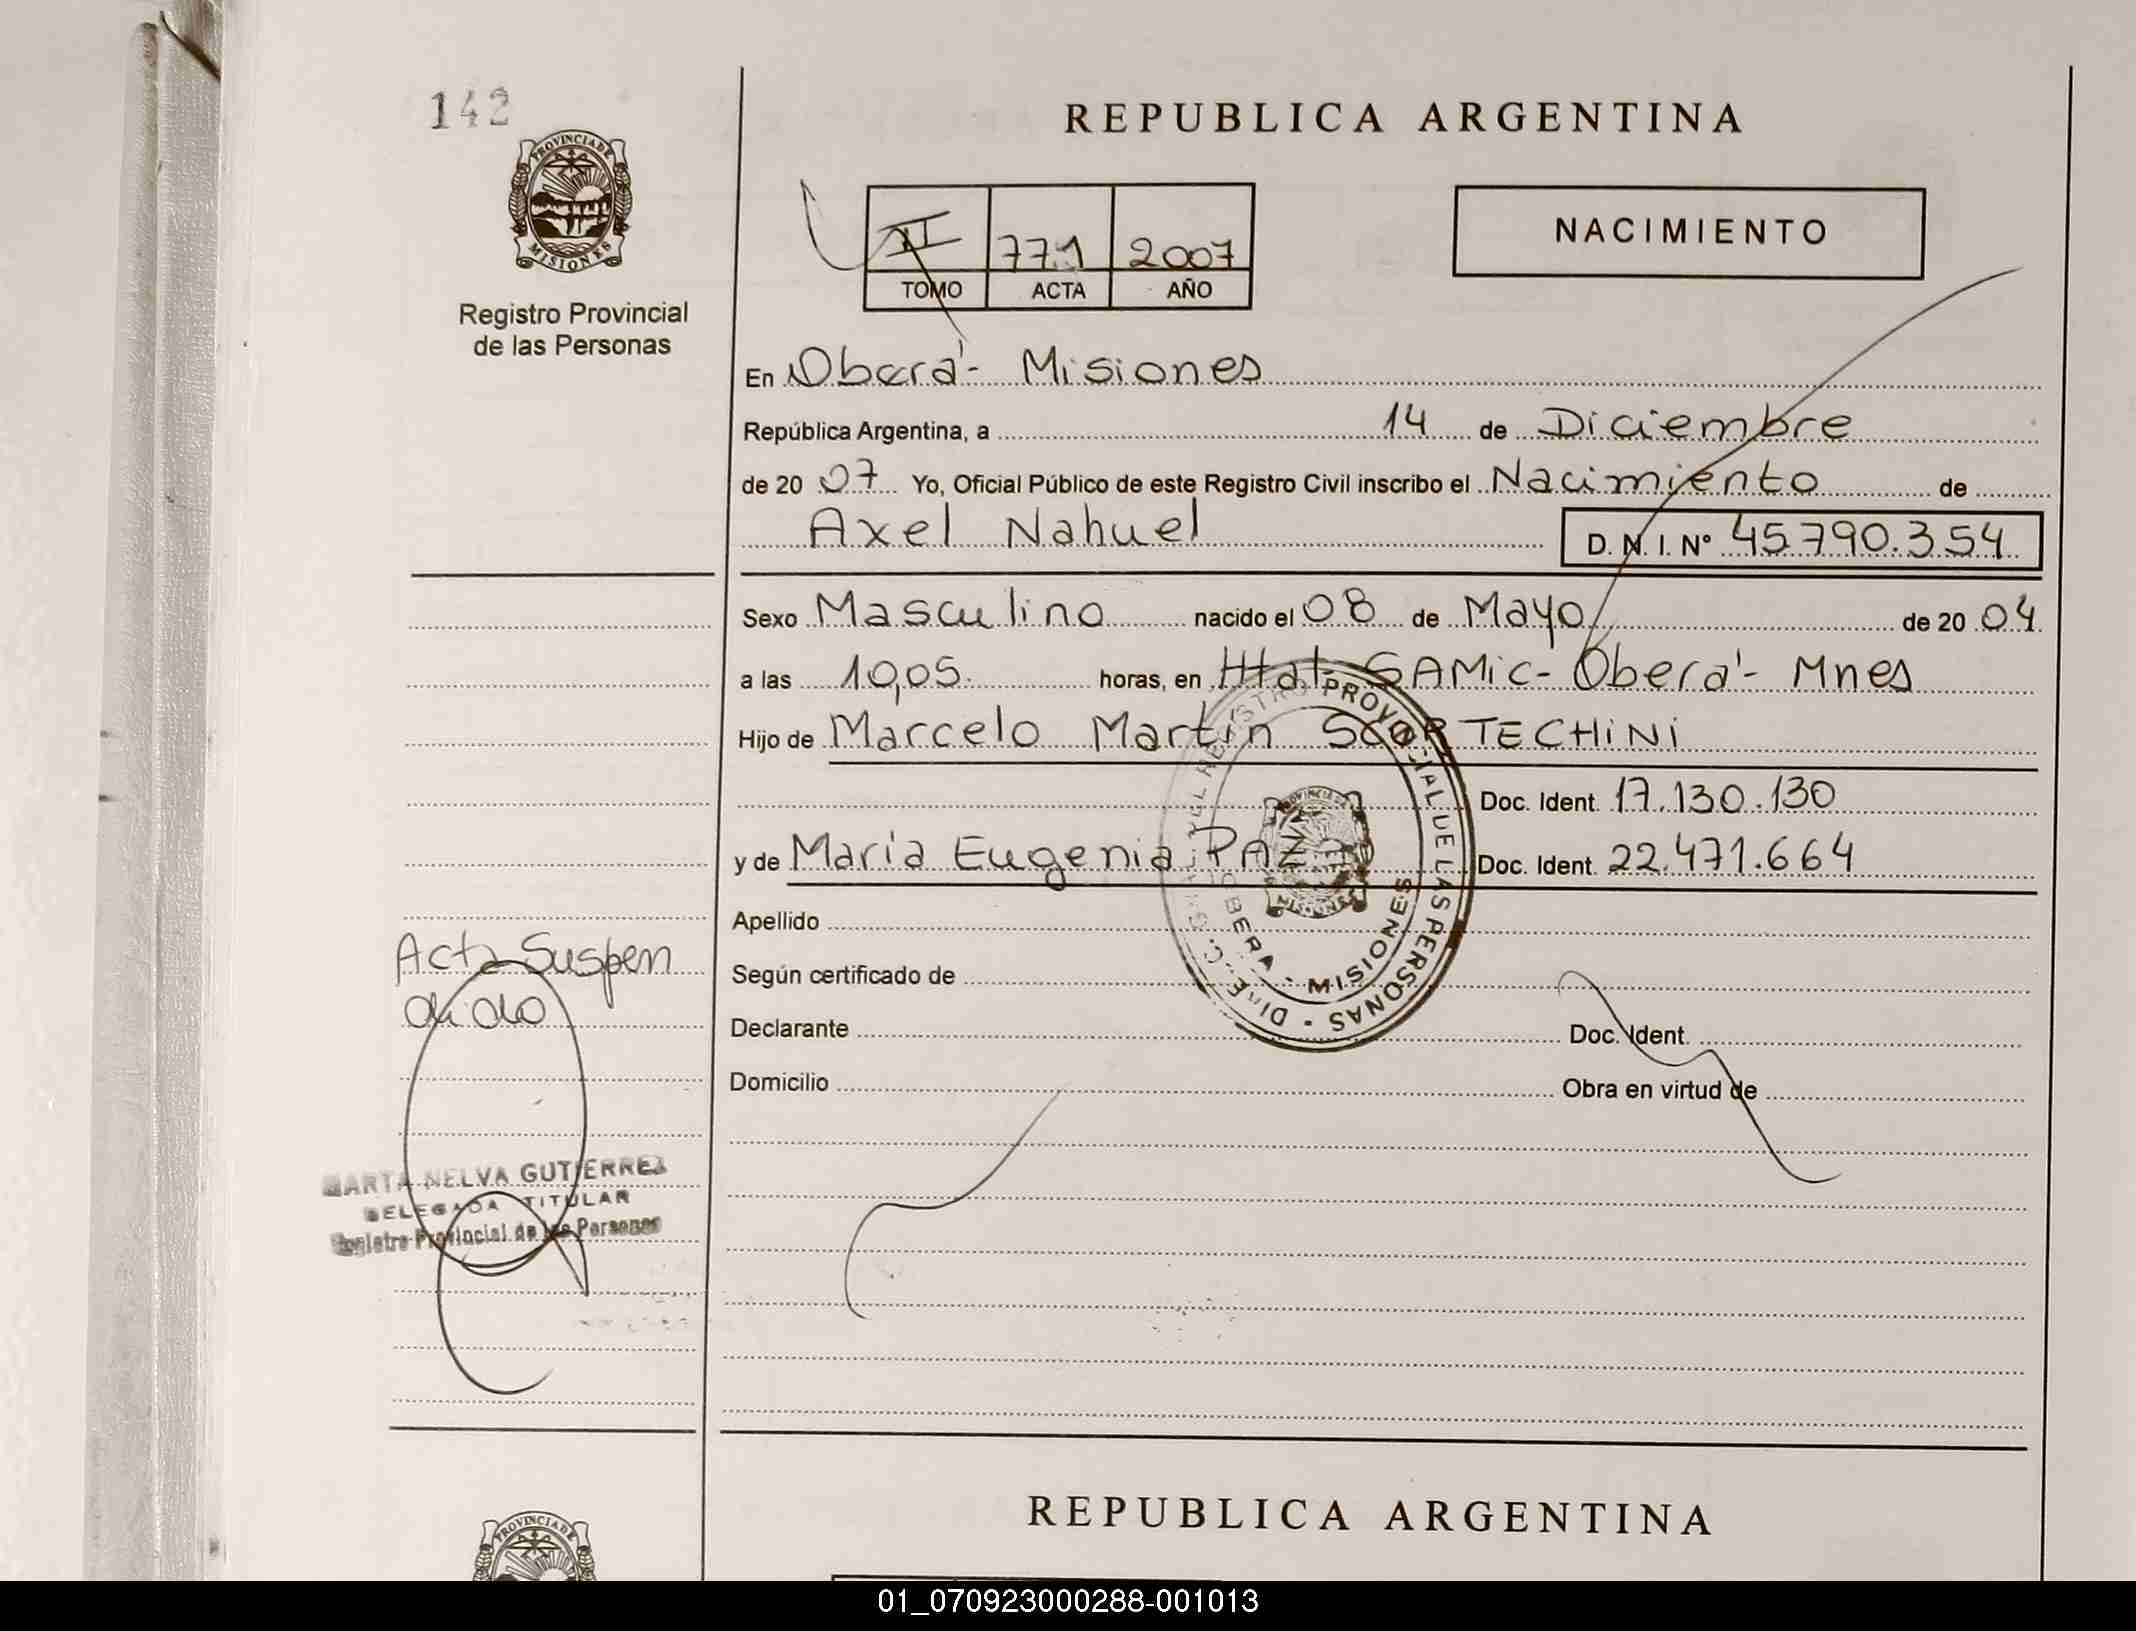 142
PROVINCIA DE
MISIONES
Registro Provincial
de las Personas
REPUBLICA ARGENTINA
II 771 2007
TOMO ACTA AÑO
NACIMIENTO
En Oberá - Misiones
República Argentina, a 14 de Diciembre
de 20 07 Yo, Oficial Público de este Registro Civil inscribo el Nacimiento de
Axel Nahuel D.N.I. Nº 45.790.354
Sexo Masculino nacido el 08 de Mayo de 20 04
a las 10,05 horas, en Htal. SAMiC - Oberá - Mnes
Hijo de Marcelo Martín SCORTECHiNi
Doc. Ident. 17.130.130
y de María Eugenia PAZ Doc. Ident. 22.471.664
Apellido
Según certificado de
Declarante Doc. Ident.
Domicilio Obra en virtud de
REGISTRO PROVINCIAL DE LAS PERSONAS
OBERA - MISIONES
PROVINCIA DE
MISIONES
Acta Suspen
dido
MARTA NELVA GUTIERREZ
DELEGADA TITULAR
Registro Provincial de las Personas
REPUBLICA ARGENTINA
PROVINCIA DE
01_070923000288-001013